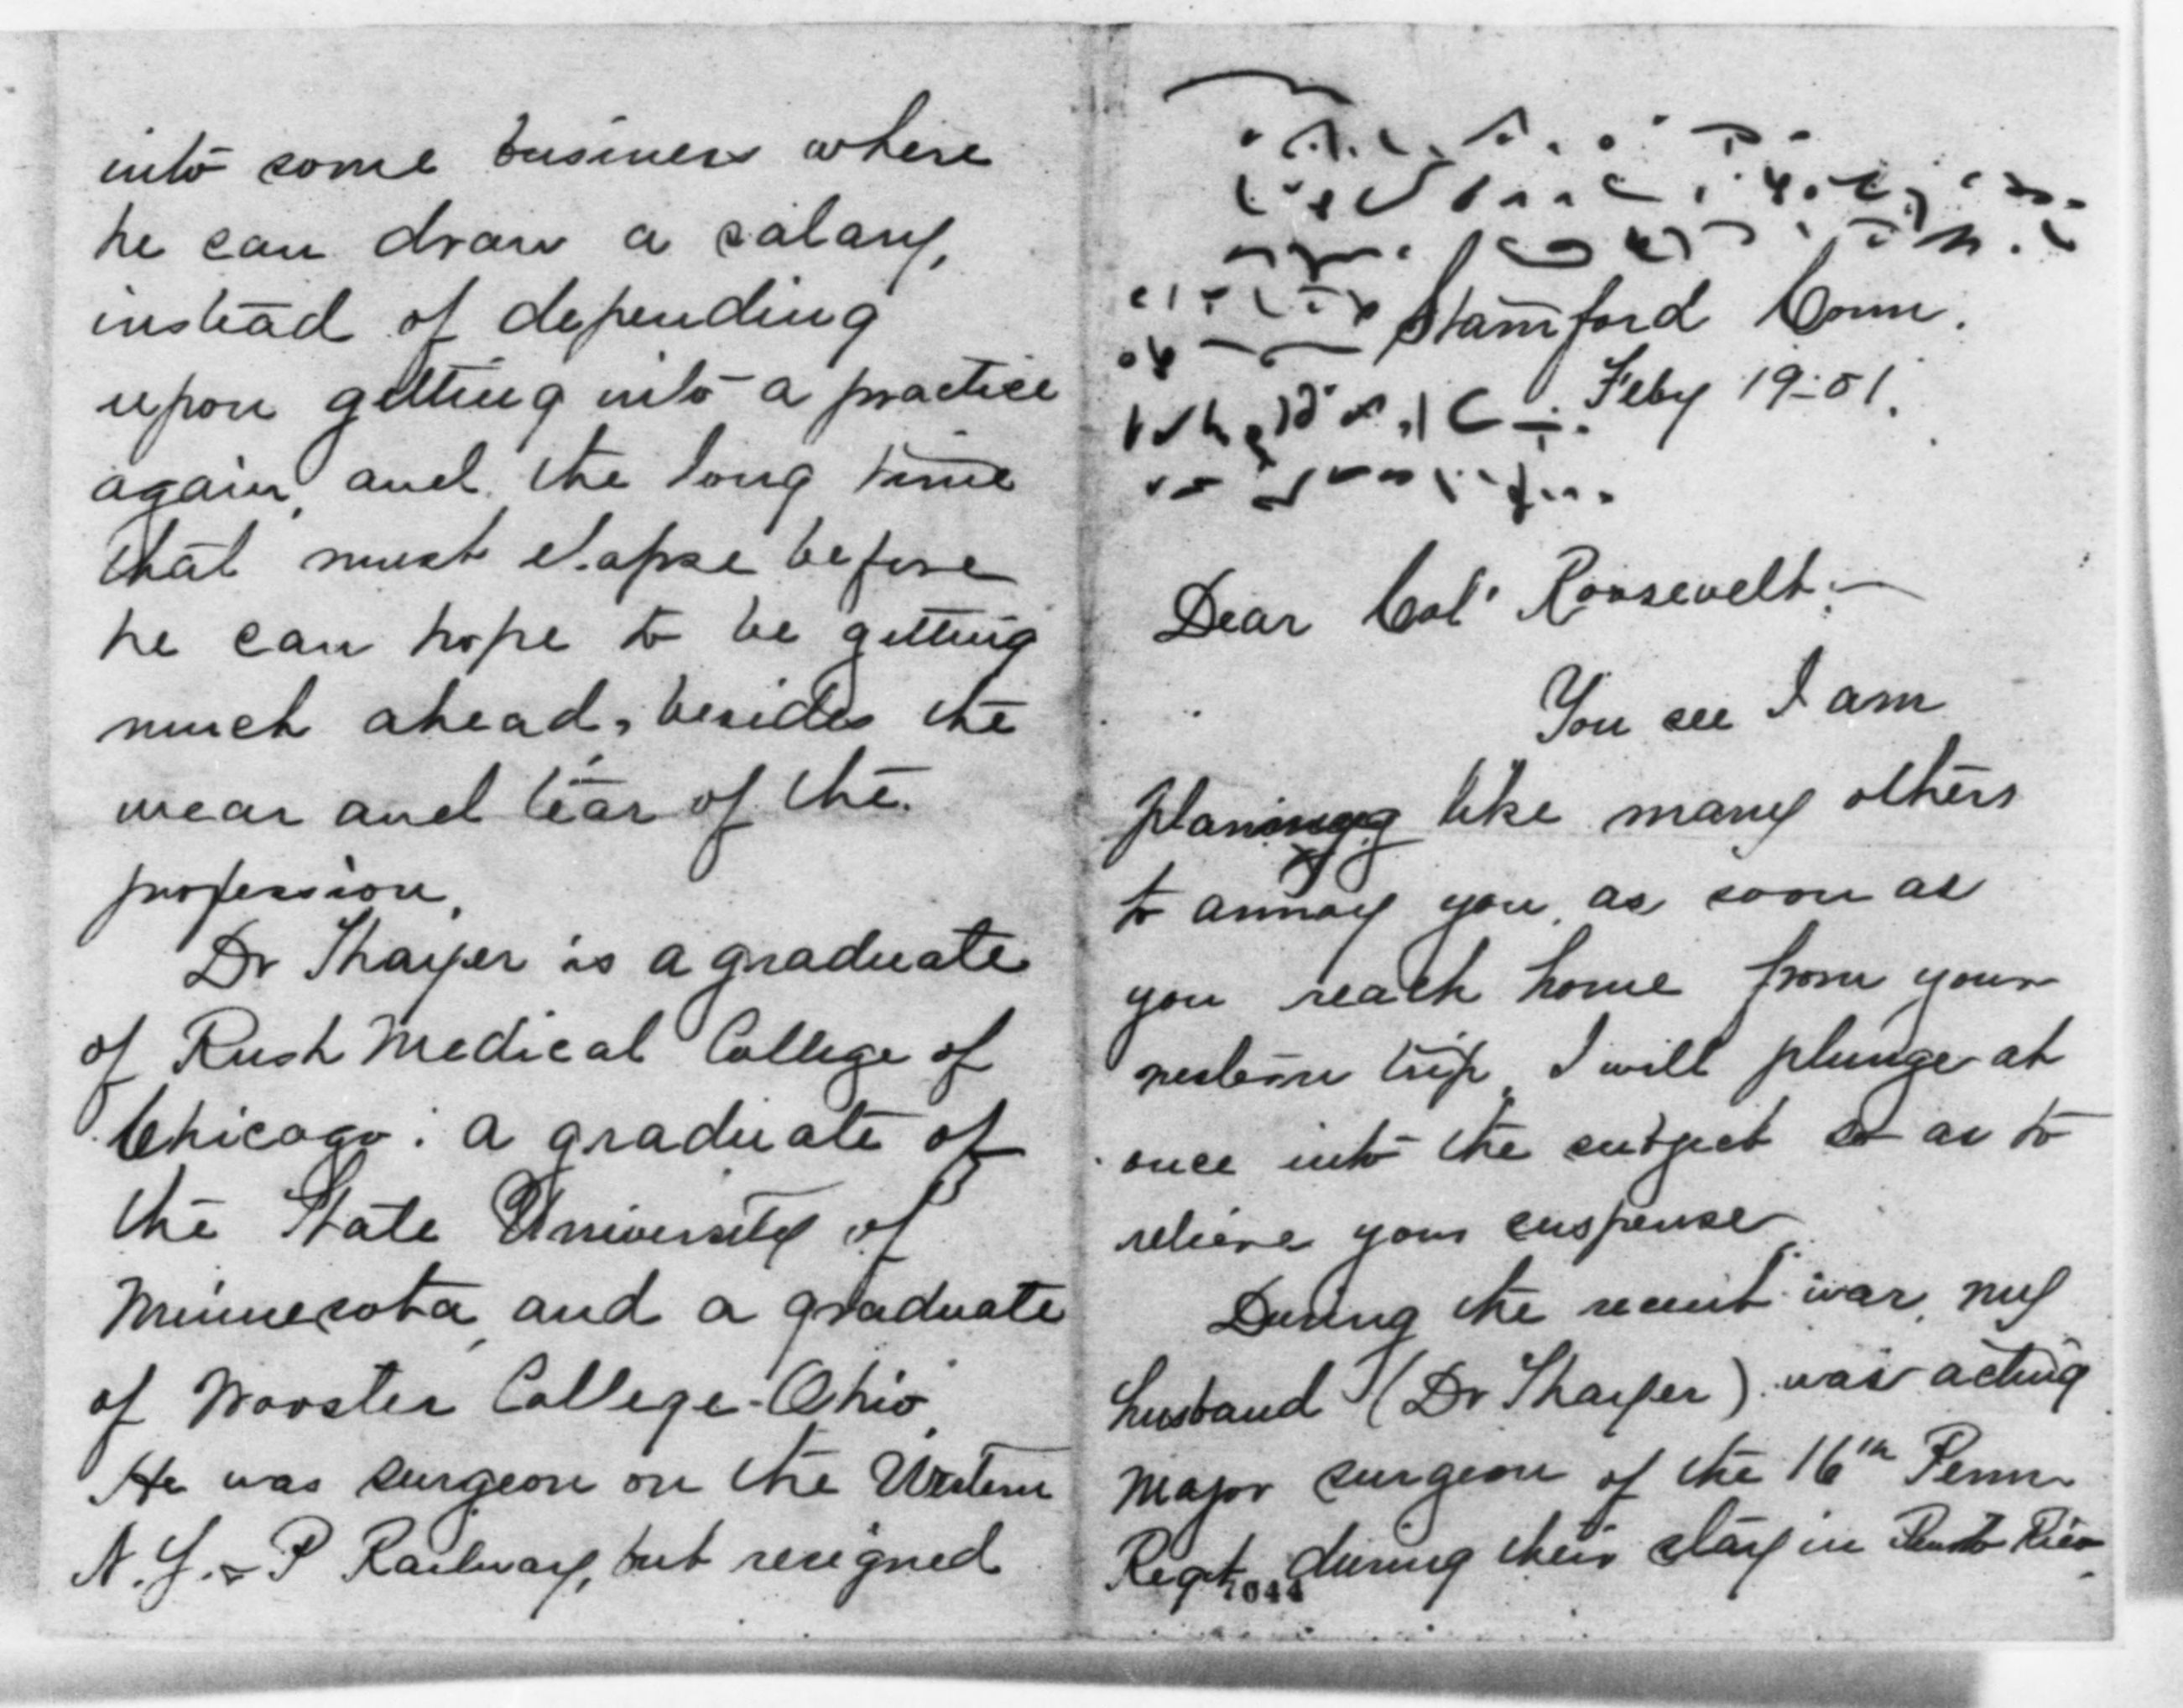 into some business where
he can draw a salary,
instead of depending
upon getting into a practice
again, and the long time
that must elapse before
he can hope to be getting
much ahead, besides the
wear and tear of the
profession.
Dr Thayer is a graduate
of Rush Medical College of
Chicago: a graduate of
the State University of
Minnesota, and a graduate
of Wooster College-Ohio.
He was surgeon on the Western
N.Y. & P Railway, but resigned
Stamford Conn.
Feby 19-01.
Dear Col' Roosevelt:—
You see I am
planing like many others
to annoy you, as soon as
you reach home from your
western trip, I will plunge at
once into the subject so as to
relieve your suspense.
During the recent war, my
husband (Dr Thayer) was acting
Major surgeon of the 16th Penn
Regt. during their stay in Puerto Rico
7044